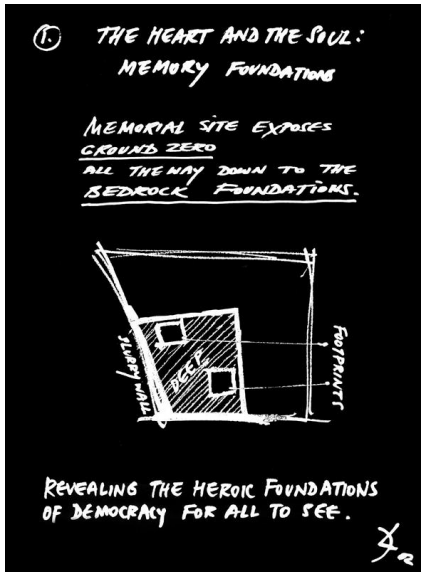 1.
THE HEART AND THE SOUL:
MEMORY FOUNDATIONS
MEMORIAL SITE EXPOSES
GROUND ZERO
ALL THE WAY DOWN TO THE
BEDROCK FOUNDATIONS.
SLURRY WALL
DEEP
FOOTPRINTS
REVEALING THE HEROIC FOUNDATIONS
OF DEMOCRACY FOR ALL TO SEE.
02